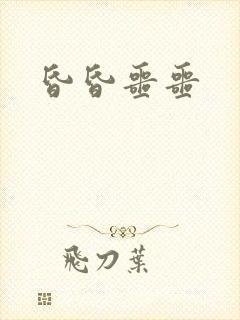 昏昏噩噩
飛刀葉